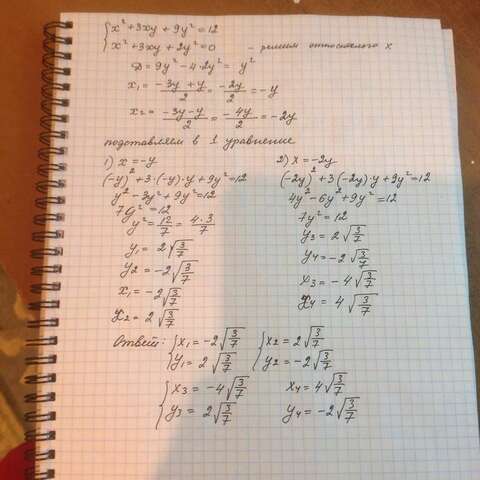 {x² + 3xy + 9y² = 12
{x² + 3xy + 2y² = 0 - решаем относительно x
D = 9y² - 4·2y² = y²
x₁ = (-3y + y)/2 = -2y/2 = -y
x₂ = (-3y - y)/2 = -4y/2 = -2y
подставляем в 1 уравнение
1) x = -y
(-y)² + 3·(-y)·y + 9y² = 12
y² - 3y² + 9y² = 12
7y² = 12
y² = 12/7 = 4·3/7
y₁ = 2√(3/7)
y₂ = -2√(3/7)
x₁ = -2√(3/7)
x₂ = 2√(3/7)
2) x = -2y
(-2y)² + 3(-2y)·y + 9y² = 12
4y² - 6y² + 9y² = 12
7y² = 12
y₃ = 2√(3/7)
y₄ = -2√(3/7)
x₃ = -4√(3/7)
x₄ = 4√(3/7)
Ответ: {x₁ = -2√(3/7) {x₂ = 2√(3/7)
{y₁ = 2√(3/7) {y₂ = -2√(3/7)
{x₃ = -4√(3/7) x₄ = 4√(3/7)
{y₃ = 2√(3/7) y₄ = -2√(3/7)